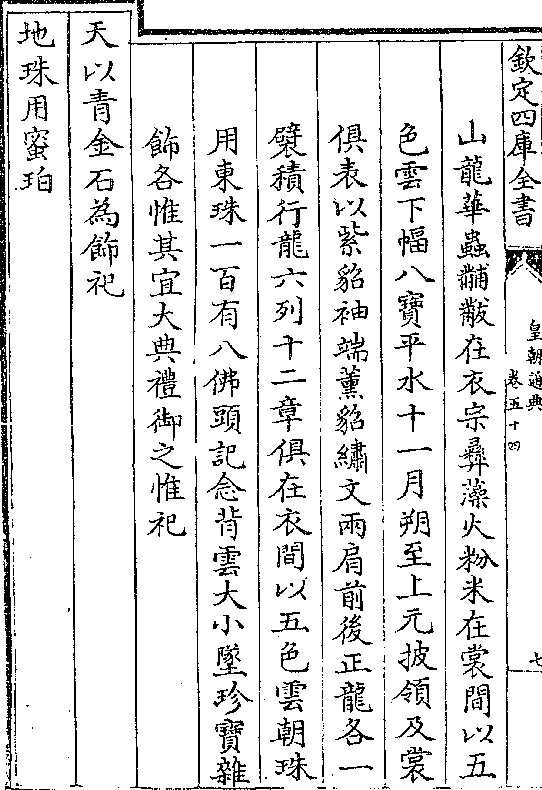 欽定四庫全書
皇朝通典
卷五十四
七
山龍華蟲黼黻在衣宗彝藻火粉米在裳間以五
色雲下幅八寶平水十一月朔至上元披領及裳
俱表以紫貂袖端薰貂繡文兩肩前後正龍各一
襞積行龍六列十二章俱在衣間以五色雲朝珠
用東珠一百有八佛頭記念背雲大小墜珍寶雜
飾各惟其宜大典禮御之惟祀
天以青金石為飾祀
地珠用蜜珀